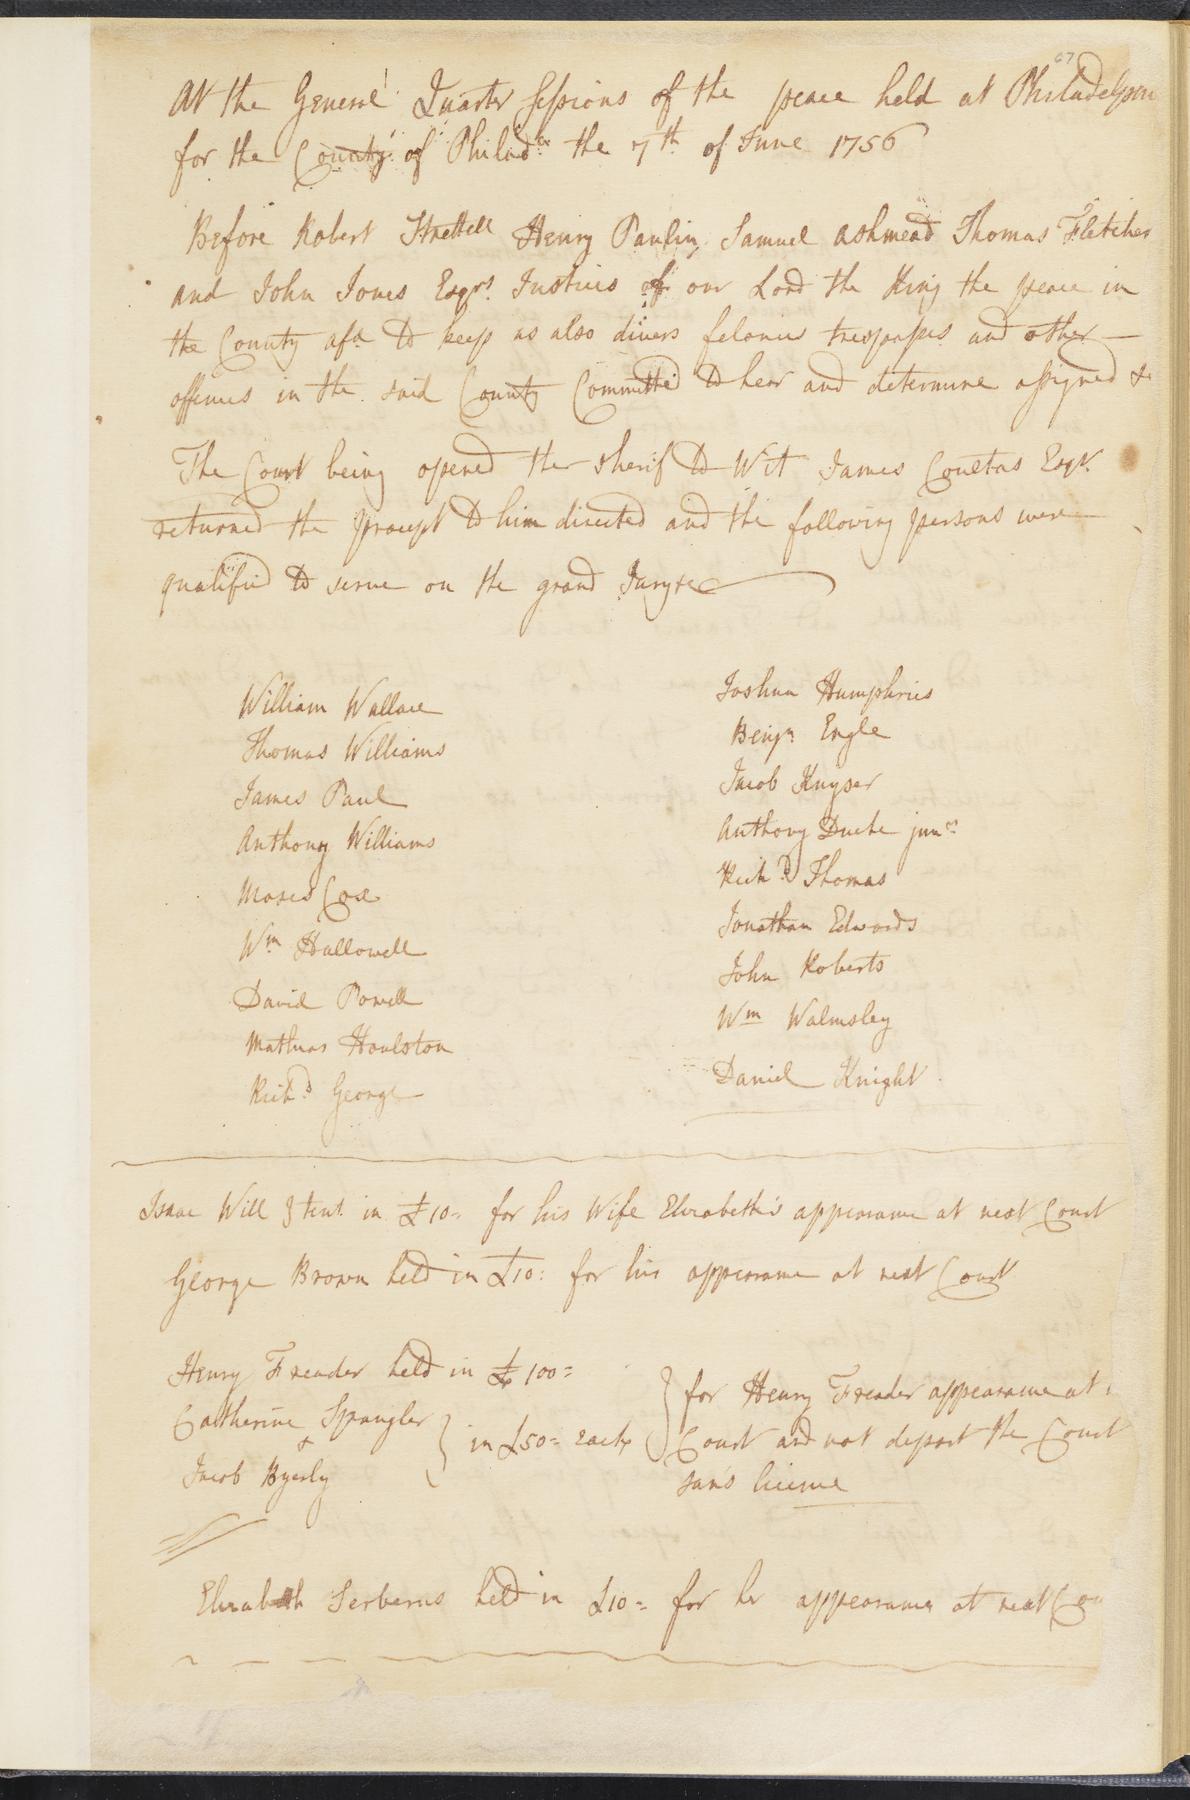 67
At the General Quarter Sessions of the peace held at Philadelphia
for the County of Philada the 7th of June 1756
Before Robert Strettell Henry Paulin Samuel Ashmead Thomas Fletcher
and John Jones Esqrs. Justices of our Lord the King the peace in
the County afd to keep as also divers felonies trespasses and other —
offences in the said County Committed to hear and determine assigned &c
The Court being opened the Sherif to Wit James Coultas Esqr.
returned the precept to him directed and the following persons were
qualified to serve on the grand Jury
William Wallace
Thomas Williams
James Paul
Anthony Williams
Moses Cox
Wm Hallowell
David Powell
Mathias Houlston
Richd George
Joshua Humphries
Benjn Engle
Jacob Kuyser
Anthony Duche junr
Richd Thomas
Jonathan Edwards
John Roberts
Wm Walmsley
Daniel Knight
Isaac Will tent. in £10= for his Wife Elizabeth's appearance at next Court
George Brown held in £10: for his appearance at next Court
Henry Freader held in £100=
Catherine Spangler
&
Jacob Byerly
in £50= Each
for Henry Freader appearance at
Court and not depart the Court
sans license
Elizabeth Serberus held in £10= for her appearance at next Cou